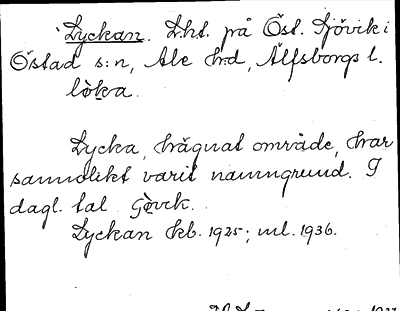 Lyckan. Lht. på Öst. Sjövik i
Östad s:n, Ale h:d, Älfsborgs l.
lo̱ka.
Lycka, hägnat område, har
sannolikt varit namngrund. I
dagl. tal Gövik.
Lyckan kb. 1925; ml. 1936.